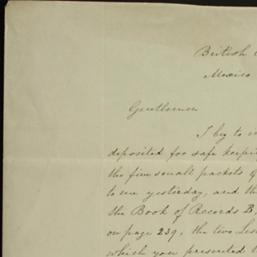 British
Mexico
Gentlemen
I beg to
deposited for safe
the five small packets
to me yesterday, and
the Book of Records B,
on page 239, the two
which you presented